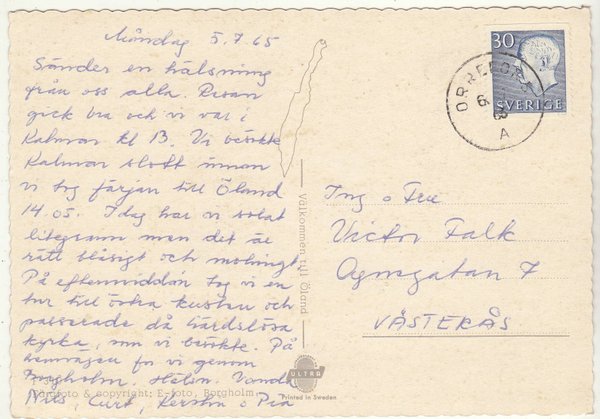 Måndag 5.7.65
Sänder en hälsning
från oss alla. Resan
gick bra och vi var i
Kalmar kl 13. Vi besökte
Kalmar slott innan
vi tog färjan till Öland
14.05. Idag har vi solat
litegrann men det är
rätt blåsigt och molnigt.
På eftermiddan tog vi en
tur till östra kusten och
passerade då Gärdslösa
kyrka, som vi besökte. På
hemvägen for vi genom
Borgholm. Hälsn. Vanda
Nils, Curt, Kerstin o Pia
Välkommen till Öland
Ensamfoto & copyright: E-foto, Borgholm
ULTRA
Printed in Sweden
30
SVERIGE
ORREFORS
6
A
Ing o Fru
Victor Falk
Agnegatan 7
VÄSTERÅS